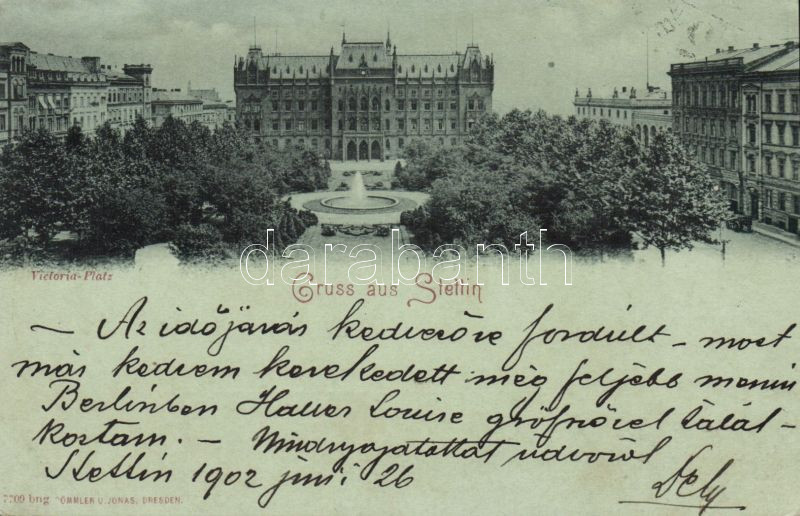 darabanth
Victoria-Platz
Gruss aus Stettin
– Az időjárás kedvezőre fordúlt – most
már kedvem kerekedett még feljebb menni
Berlinben Haller Louise grófnővel talál-
koztam. – Mindnyájatokat üdvözöl
Stettin 1902 juni 26
Dely
7709 brig RÖMMLER U. JONAS, DRESDEN.